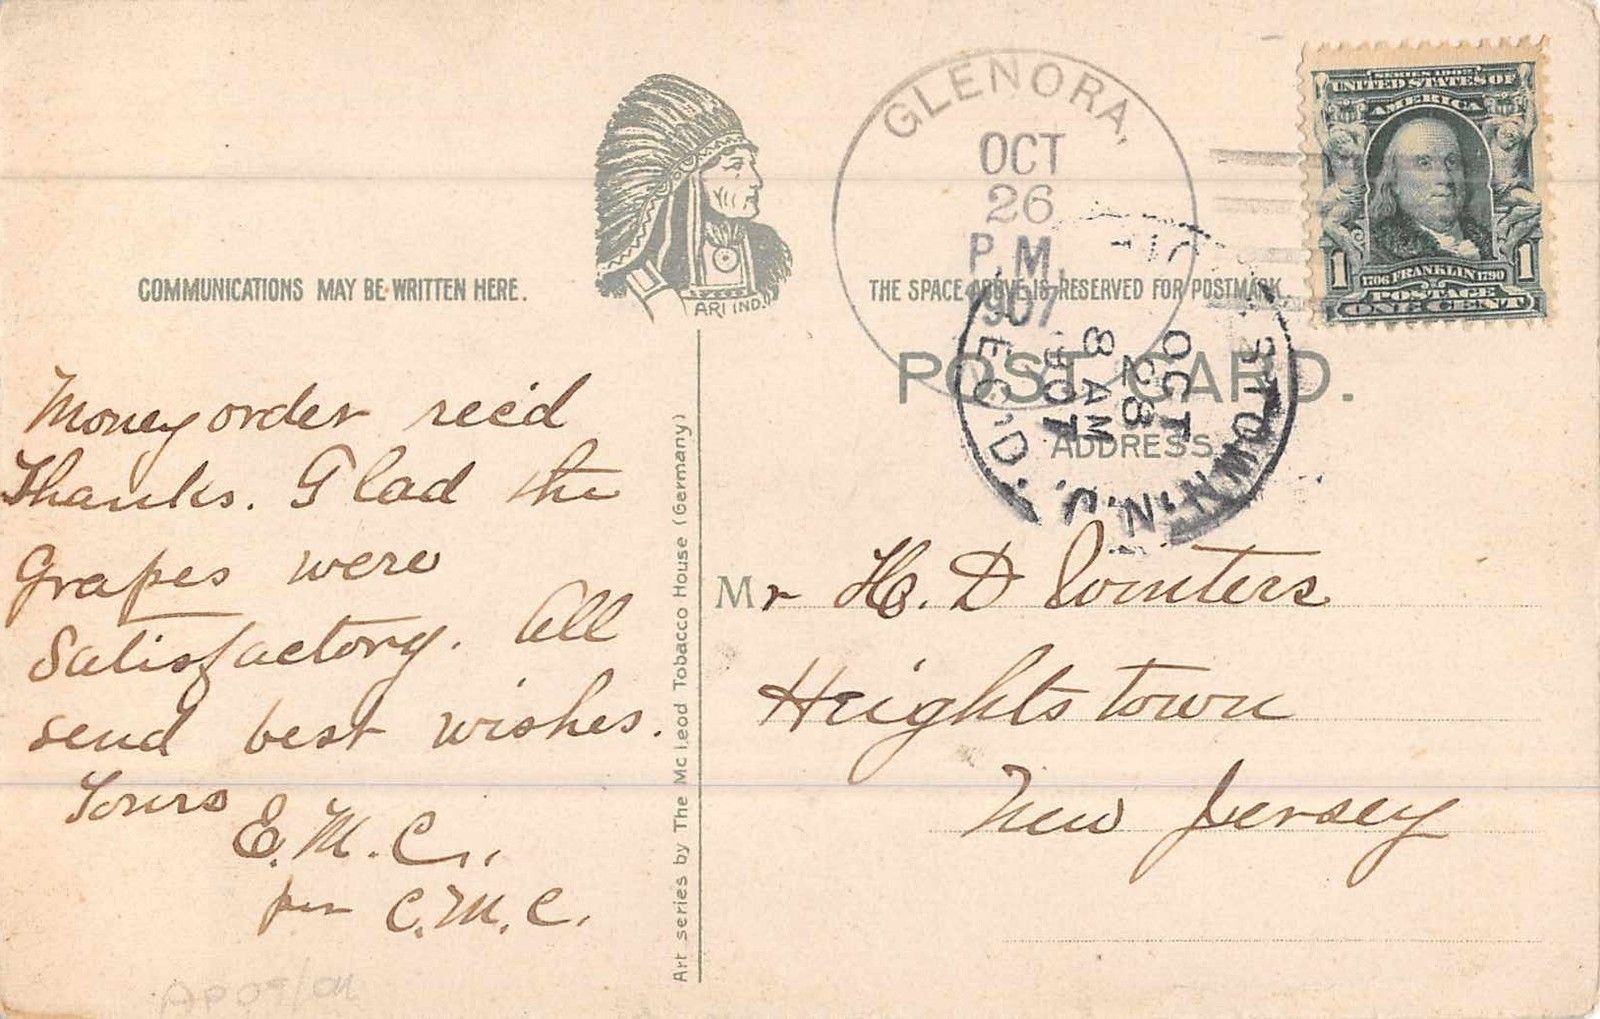 COMMUNICATIONS MAY BE WRITTEN HERE.
ART IND.
Money order rec'd
Thanks. Glad the
grapes were
satisfactory. All
send best wishes.
Yours
E. M. C.,
per C. M. C.
Art series by The McLeod Tobacco House (Germany)
GLENORA,
OCT
26
P.M.
1907
THE SPACE ABOVE IS RESERVED FOR POSTMARK
POST CARD.
ADDRESS
OCT
28
8 AM
1907
STOWN, N.J.
REC'D.
SERIES 1902
UNITED STATES OF
AMERICA
1706 FRANKLIN 1790
1 1
POSTAGE
ONE CENT
Mr H. D Winters
Heightstown
New Jersey